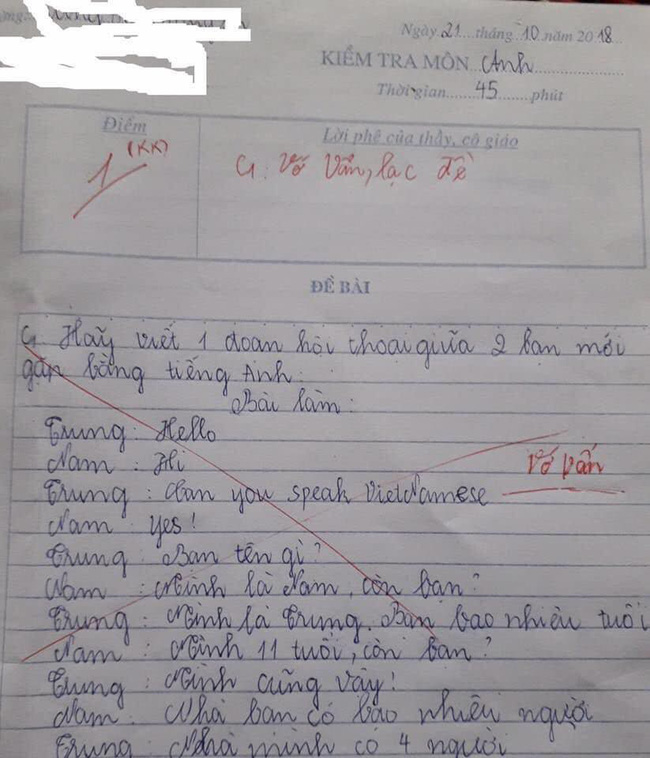 Ngày 21 tháng 10 năm 2018
KIỂM TRA MÔN Anh
Thời gian 45 phút
Điểm
Lời phê của thầy, cô giáo
1 (KK)
G: Vớ Vẩn, lạc đề
ĐỀ BÀI
G Hãy viết 1 đoan hội thoại giữa 2 bạn mới
gặp bằng tiếng Anh.
Bài làm:
Trung: Hello
Nam: Hi
Vớ vấn
Trung: Can you speak VietNamese
Nam: yes!
Trung: Bạn tên gì?
Nam: Mình là Nam, còn bạn?
Trung: Mình là Trung. Bạn bao nhiêu tuổi
Nam: Mình 11 tuổi, còn bạn?
Trung: Mình cũng vậy!
Nam: Nhà bạn có bao nhiêu người
Trung: Nhà mình có 4 người